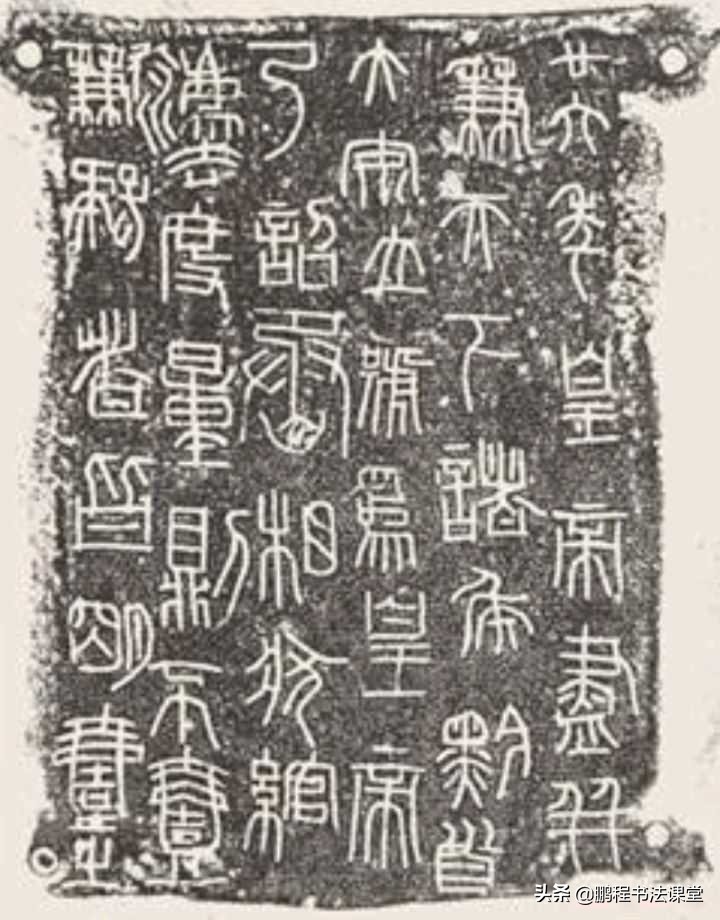 廿六年皇帝盡并
兼天下諸侯黔首
大安立號為皇帝
乃詔丞相狀綰
灋度量則不壹
歉疑者皆明壹之
头条 @鹏程书法课堂